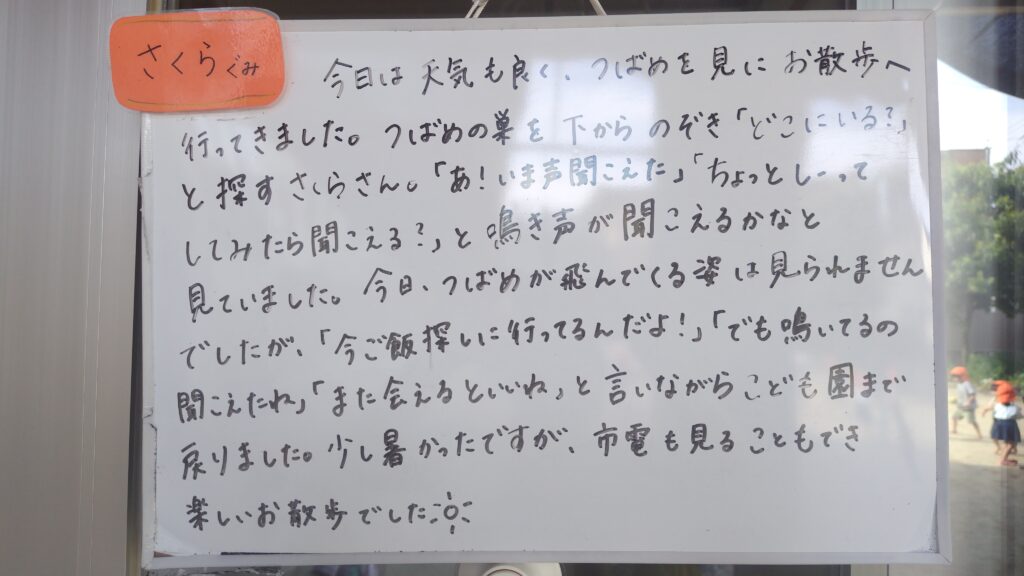 さくらぐみ
今日は天気も良く、つばめを見にお散歩へ
行ってきました。つばめの巣を下からのぞき「どこにいる?」
と探すさくらさん。「あ!いま声聞こえた」「ちょっとしーって
してみたら聞こえる?」と鳴き声が聞こえるかなと
見ていました。今日、つばめが飛んでくる姿は見られません
でしたが、「今ご飯探しに行ってるんだよ!」「でも鳴いてるの
聞こえたね」「また会えるといいね」と言いながらこども園まで
戻りました。少し暑かったですが、市電も見ることもでき
楽しいお散歩でした